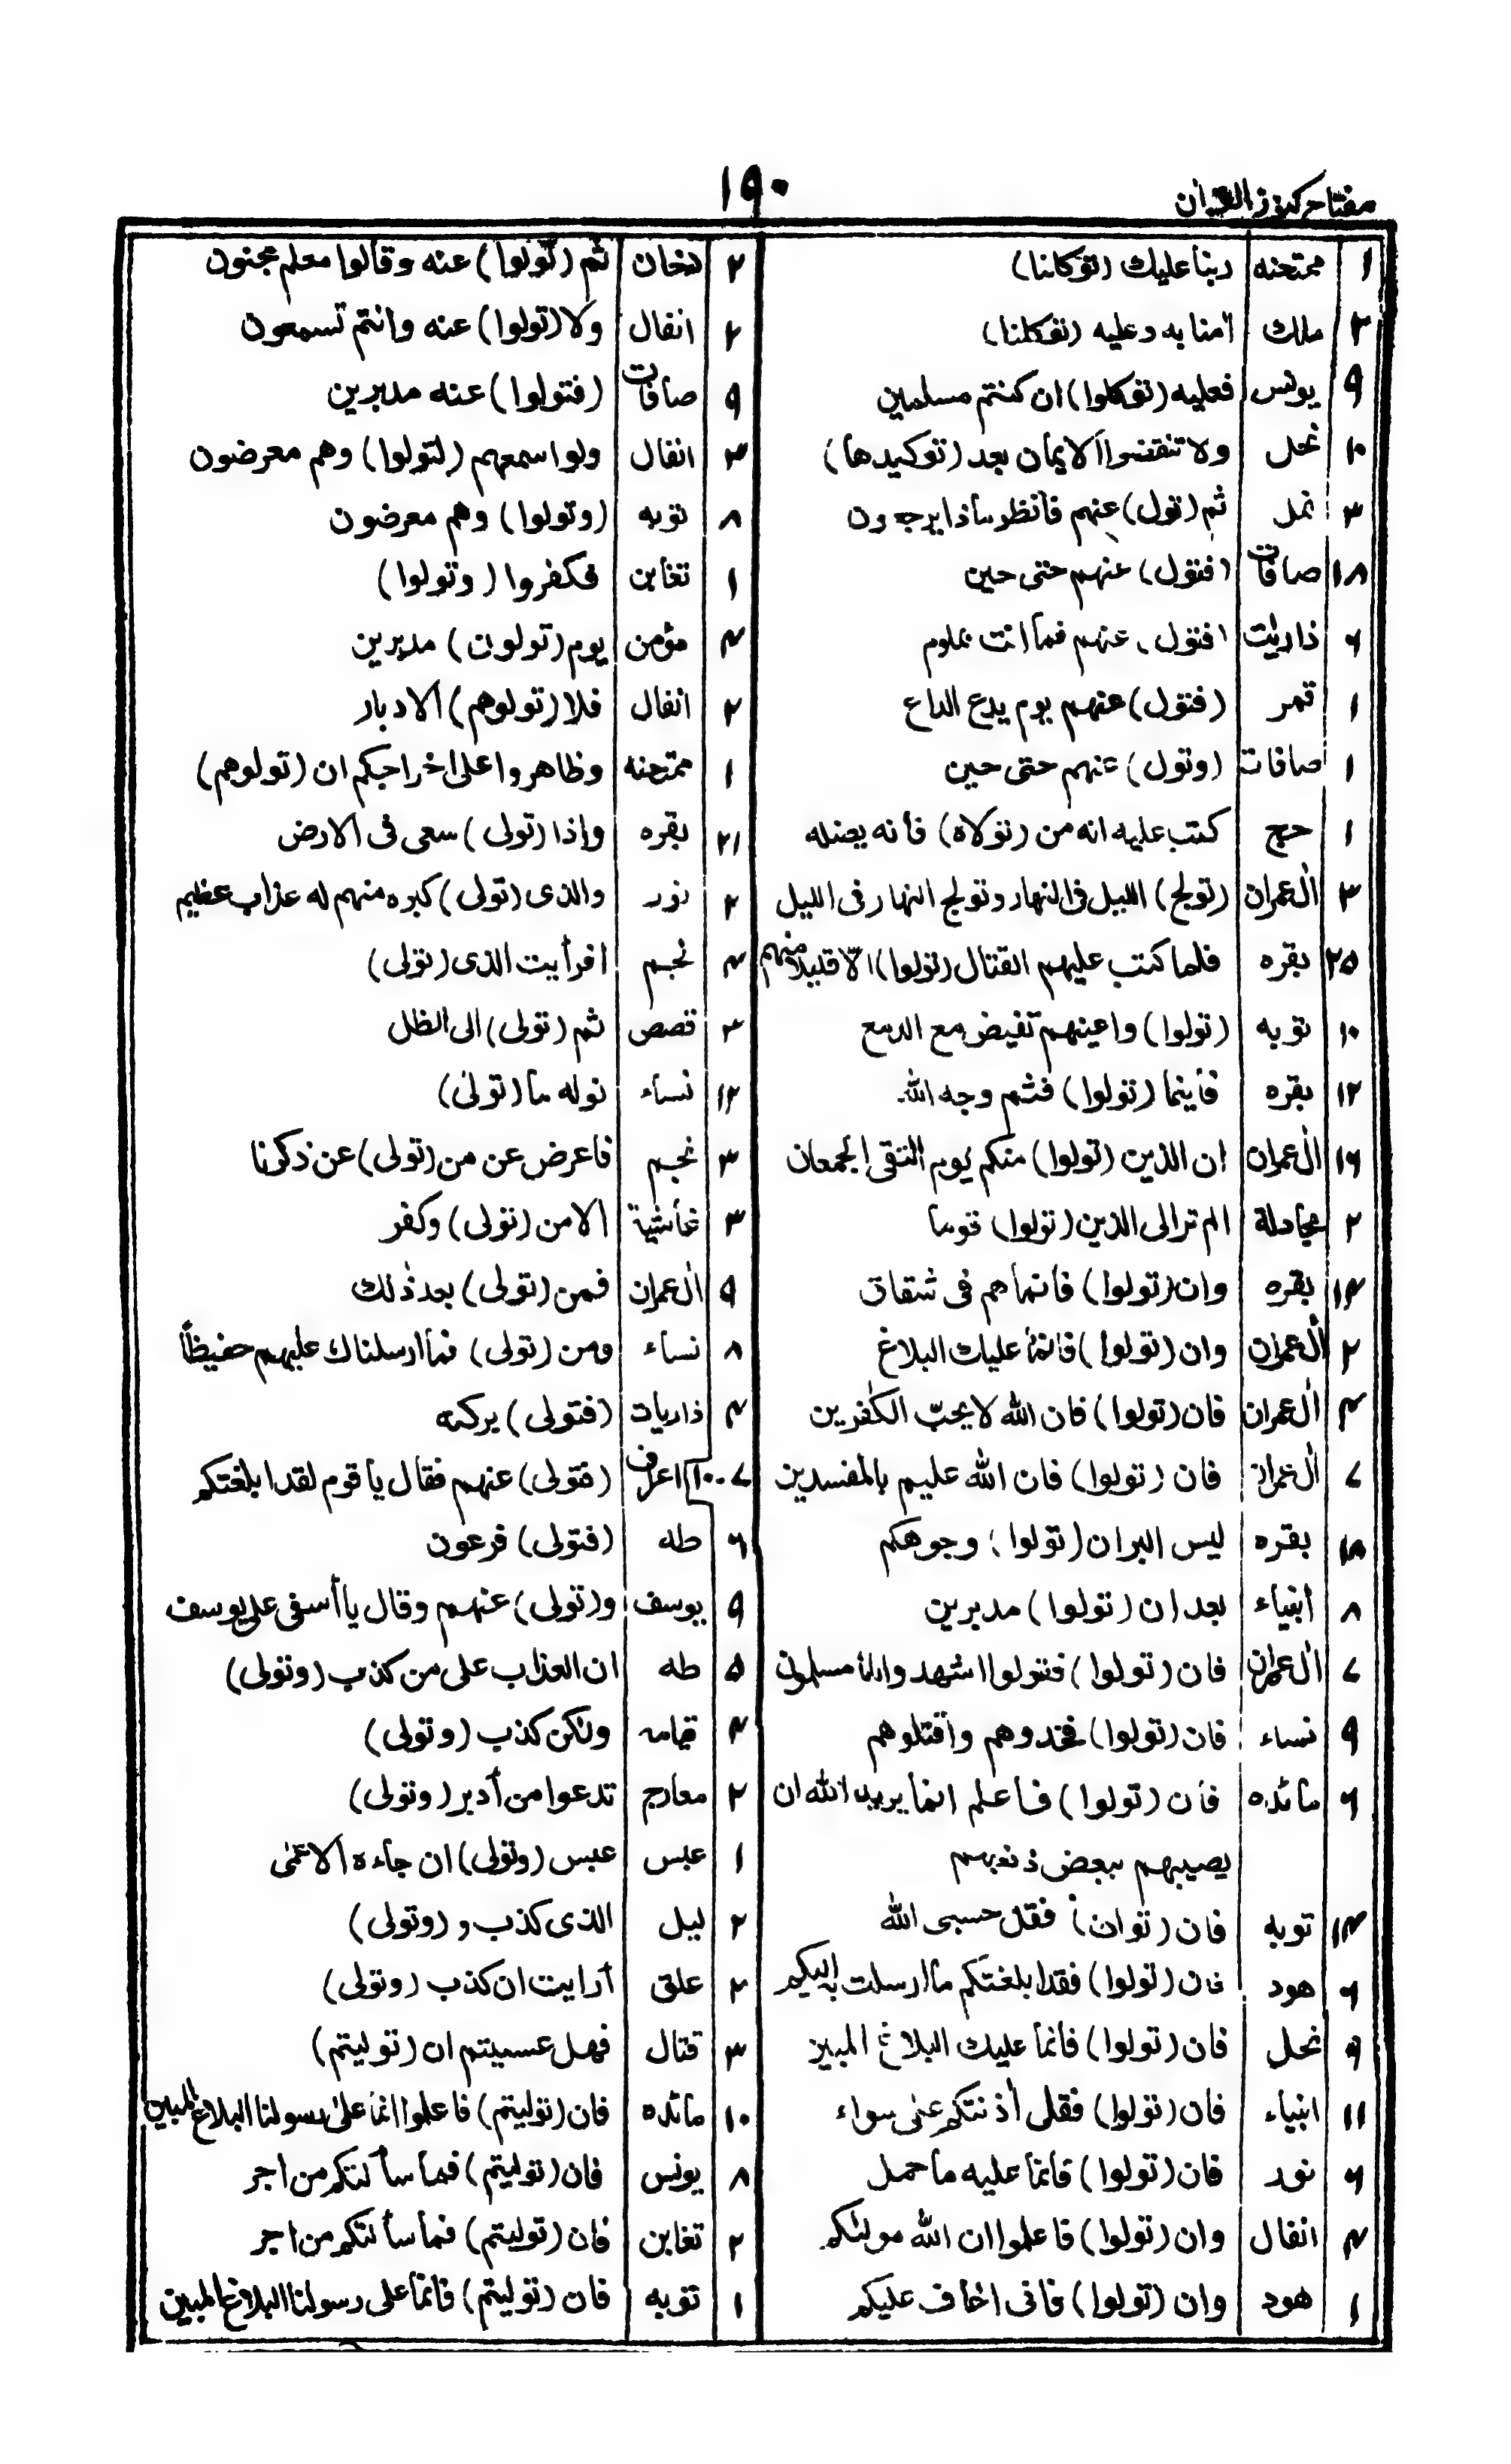 مفتاح کنوز القرآن
۱۹۰
۱ ممتحنه ربنا علیك (توکلنا)
۲ ملك اٰمنا به وعلیه (توکلنا)
۹ یونس فعلیه (توکلوا) ان کنتم مسلمین
۱۰ نحل ولا تنقضوا الایمان بعد (توکیدها)
۳ نمل ثم (تول) عنهم فانظر ماذا یرجعون
۱۸ صافات (فتول) عنهم حتی حین
۶ ذاریٰت (فتول) عنهم فما انت بملوم
۱ قمر (فتول) عنهم یوم یدع الداع
۱ صافات (وتول) عنهم حتی حین
۱ حج کتب علیه انه من (تولاه) فأنه یضله
۳ اٰل عمران (تولج) اللیل فی النهار وتولج النهار فی اللیل
۲۵ بقره فلما کتب علیهم القتال (تولوا) الّا قلیلا منهم
۱۰ توبه (تولوا) واعینهم تفیض مع الدمع
۱۲ بقره فأینما (تولوا) فثم وجه الله
۱۶ اٰل عمران ان الذین (تولوا) منکم یوم التقی الجمعان
۲ مجادلة الم تر الی الذین (تولوا) قوما
۱۴ بقره وان (تولوا) فأنما هم فی شقاق
۲ اٰل عمران وان (تولوا) فانما علیك البلاغ
۴ اٰل عمران فان (تولوا) فان الله لا یحبّ الکٰفرین
۷ اٰل عمران فان (تولوا) فان الله علیم بالمفسدین
۱۸ بقره لیس البر ان (تولوا) وجوهکم
۸ أنبیاء بعد ان (تولوا) مدبرین
۷ اٰل عمران فان (تولوا) فتولوا اشهدوا باننا مسلمون
۹ نساء فان (تولوا) فخدوهم واقتلوهم
۶ مائده فأن (تولوا) فاعلم انما یرید الله ان
یصیبهم ببعض ذنوبهم
۱۴ توبه فان (توان) فقل حسبی الله
۶ هود فان (تولوا) فقد ابلغتکم ما ارسلت به الیکم
۹ نحل فان (تولوا) فأنما علیك البلاغ المبین
۱۱ انبیاء فان (تولوا) فقل أذنتکم علی سواء
۶ نور فان (تولوا) فأنما علیه ما حمل
۴ انفال وان (تولوا) فاعلموا ان الله مولٰکم
۱ هود وان (تولوا) فانی اخاف علیکم
۲ دخان ثم (تولوا) عنه وقالوا معلم مجنون
۲ انفال ولا (تولوا) عنه وانتم تسمعون
۹ صافات (فتولوا) عنه مدبرین
۳ انفال ولو اسمعهم (لتولوا) وهم معرضون
۸ توبه (وتولوا) وهم معرضون
۱ تغابن فکفروا (وتولوا)
۴ مؤمن یوم (تولون) مدبرین
۲ انفال فلا (تولوهم) الادبار
۱ ممتحنه وظاهروا علی اخراجکم ان (تولوهم)
۲۱ بقره واذا (تولی) سعی فی الارض
۲ نور والذی (تولی) کبره منهم له عذاب عظیم
۴ نجم افرأیت الذی (تولی)
۳ قصص ثم (تولی) الی الظل
۱۲ نساء نوله ما (تولی)
۳ نجم فاعرض عن من (تولی) عن ذکرنا
۳ غاشیة الا من (تولی) وکفر
۹ اٰل عمران فمن (تولی) بعد ذٰلك
۸ نساء ومن (تولی) فما ارسلناك علیهم حفیظاً
۴ ذاریات (فتولی) برکنه
۷-۱۰ اعراف (فتولی) عنهم فقال یا قوم لقد ابلغتکم
۶ طه (فتولی) فرعون
۹ یوسف و(تولی) عنهم وقال یا أسفی علی یوسف
۵ طه ان العذاب علی من کذب (وتولی)
۴ قیامه ولکن کذب (وتولی)
۲ معارج تدعوا من أدبر (وتولی)
۱ عبس عبس (وتولی) ان جاءه الاعمی
۲ لیل الذی کذب و (وتولی)
۲ علق أرایت ان کذب (وتولی)
۳ قتال فهل عسیتم ان (تولیتم)
۱۰ مائده فان (تولیتم) فاعلموا انما علی رسولنا البلاغ المبین
۸ یونس فان (تولیتم) فما سألتکم من اجر
۲ تغابن فان (تولیتم) فما سألتکم من اجر
۱ توبه فان (تولیتم) فانما علی رسولنا البلاغ المبین